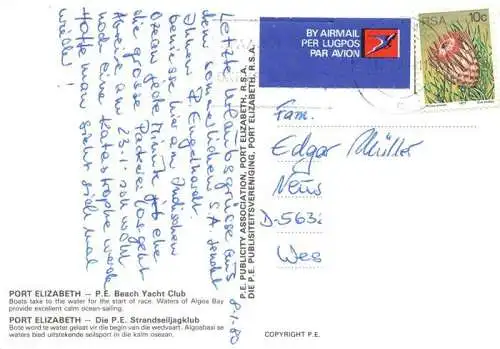 8.1.80
Letzte Urlaubsgrüße aus
dem sommerlichen S.A. sendet
Ihnen P. Engelhardt.
genieße hier am Indischen
Ozean jede Minute, ehe
die große Packerei losgeht
Abreise am 23.1. ich
noch eine Katastrophe werden
Hoffe man sieht sich mal
wieder!
PORT ELIZABETH — P.E. Beach Yacht Club
Boats take to the water for the start of race. Waters of Algoa Bay
provide excellent calm ocean-sailing.
PORT ELIZABETH — Die P.E. Strandseiljagklub
Bote word te water gelaat vir die begin van die wedvaart. Algoabaai se
waters bied uitstekende seilsport in die kalm oseaan.
P.E. PUBLICITY ASSOCIATION, PORT ELIZABETH, R.S.A.
DIE P.E. PUBLISITEITSVERENIGING, PORT ELIZABETH, R.S.A.
BY AIRMAIL
PER LUGPOS
PAR AVION
RSA 10c
Fam.
Edgar Müller
Neus
D-563
Wes
COPYRIGHT P.E.